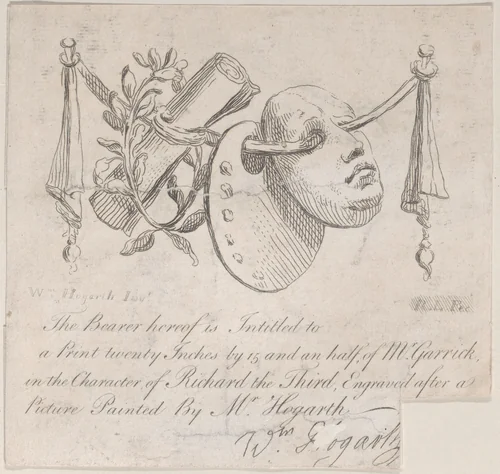 Wm. Hogarth Invt.
The Bearer hereof is Intitled to
a Print twenty Inches by 15 and an half, of Mr. Garrick,
in the Character of Richard the Third, Engraved after a
Picture Painted By Mr. Hogarth
Wm Hogarth